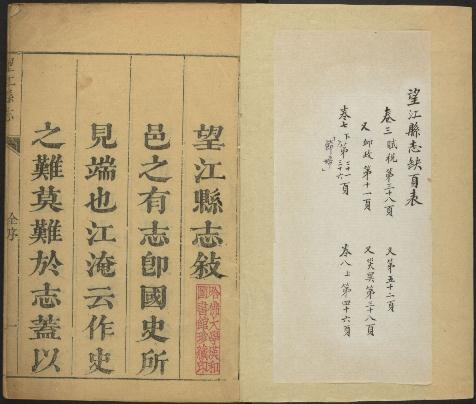 望江縣志缺頁表
卷三 賦稅 第三十八頁
又 第五十二頁
又 郵政 第十一頁
又 災異 第三十八頁
卷七下 第二十一
三十六 頁
卷八上 第四十六頁
望江縣志敘
哈佛大學漢和
圖書館珍藏印
邑之有志卽國史所
見端也江淹云作史
之難莫難於志蓋以
望江縣志
全序